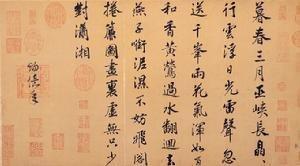 暮春三月巫峽長晶
行雲浮日光雷聲忽
送千峯雨花氣渾如
和香黃鶯過水翻迴去
燕子銜泥濕不妨飛閣
捲簾圖畫裏虛無只少
對瀟湘